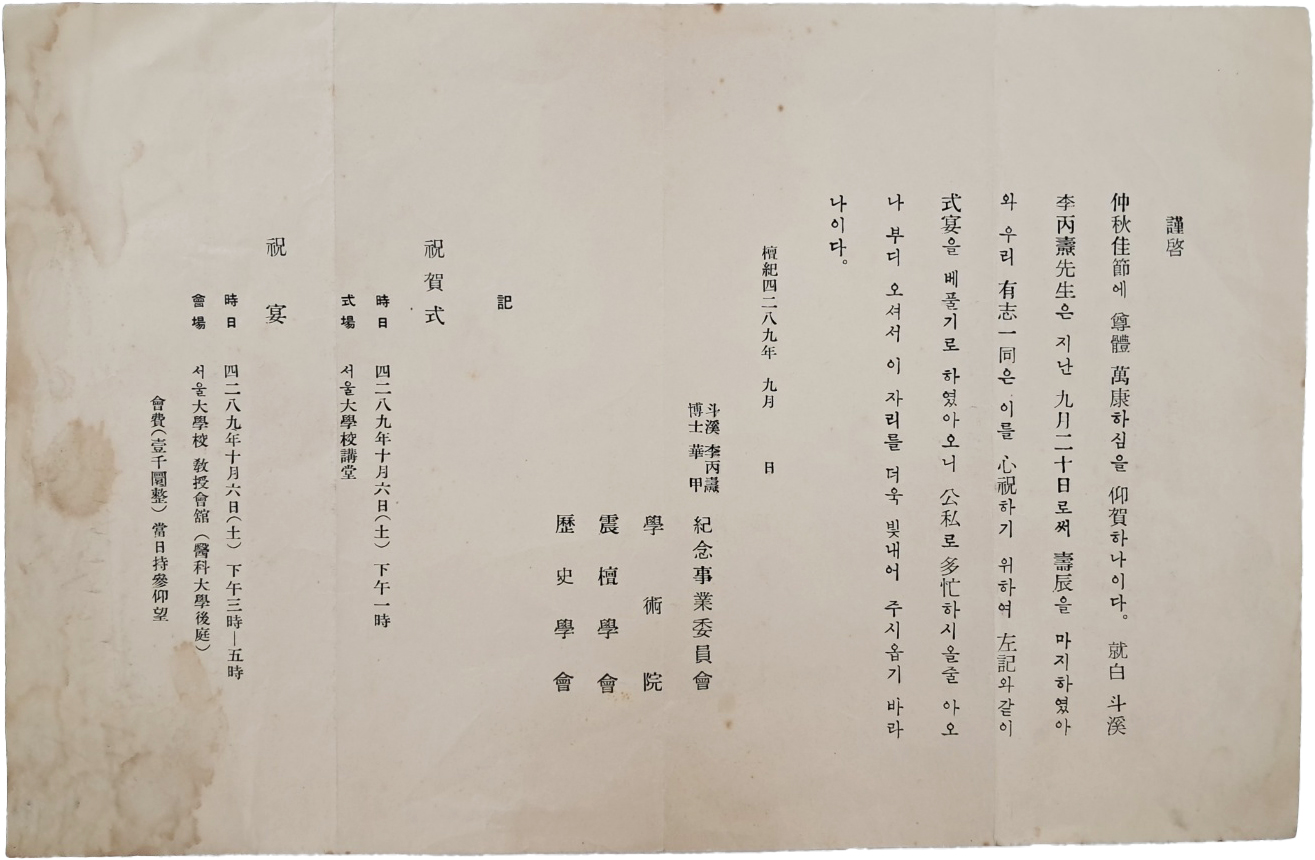 謹啓
仲秋佳節에 尊體 萬康하심을 仰賀하나이다。 就白 斗溪
李丙燾先生은 지난 九月二十日로써 壽辰을 마지하였아
와 우리 有志一同은 이를 心祝하기 위하여 左記와같이
式宴을 베풀기로 하였아오니 公私로 多忙하시올줄 아오
나 부디 오셔서 이 자리를 더욱 빛내어 주시옵기 바라
나이다。
檀紀四二八九年 九月 日
斗溪 李丙燾
博士 華甲
紀念事業委員會
學術院
震檀學會
歷史學會
記
祝賀式
時日 四二八九年十月六日(土) 下午一時
式場 서울大學校講堂
祝宴
時日 四二八九年十月六日(土) 下午三時—五時
會場 서울大學校 敎授會舘 (醫科大學後庭)
會費(壹千圜整) 當日持參仰望